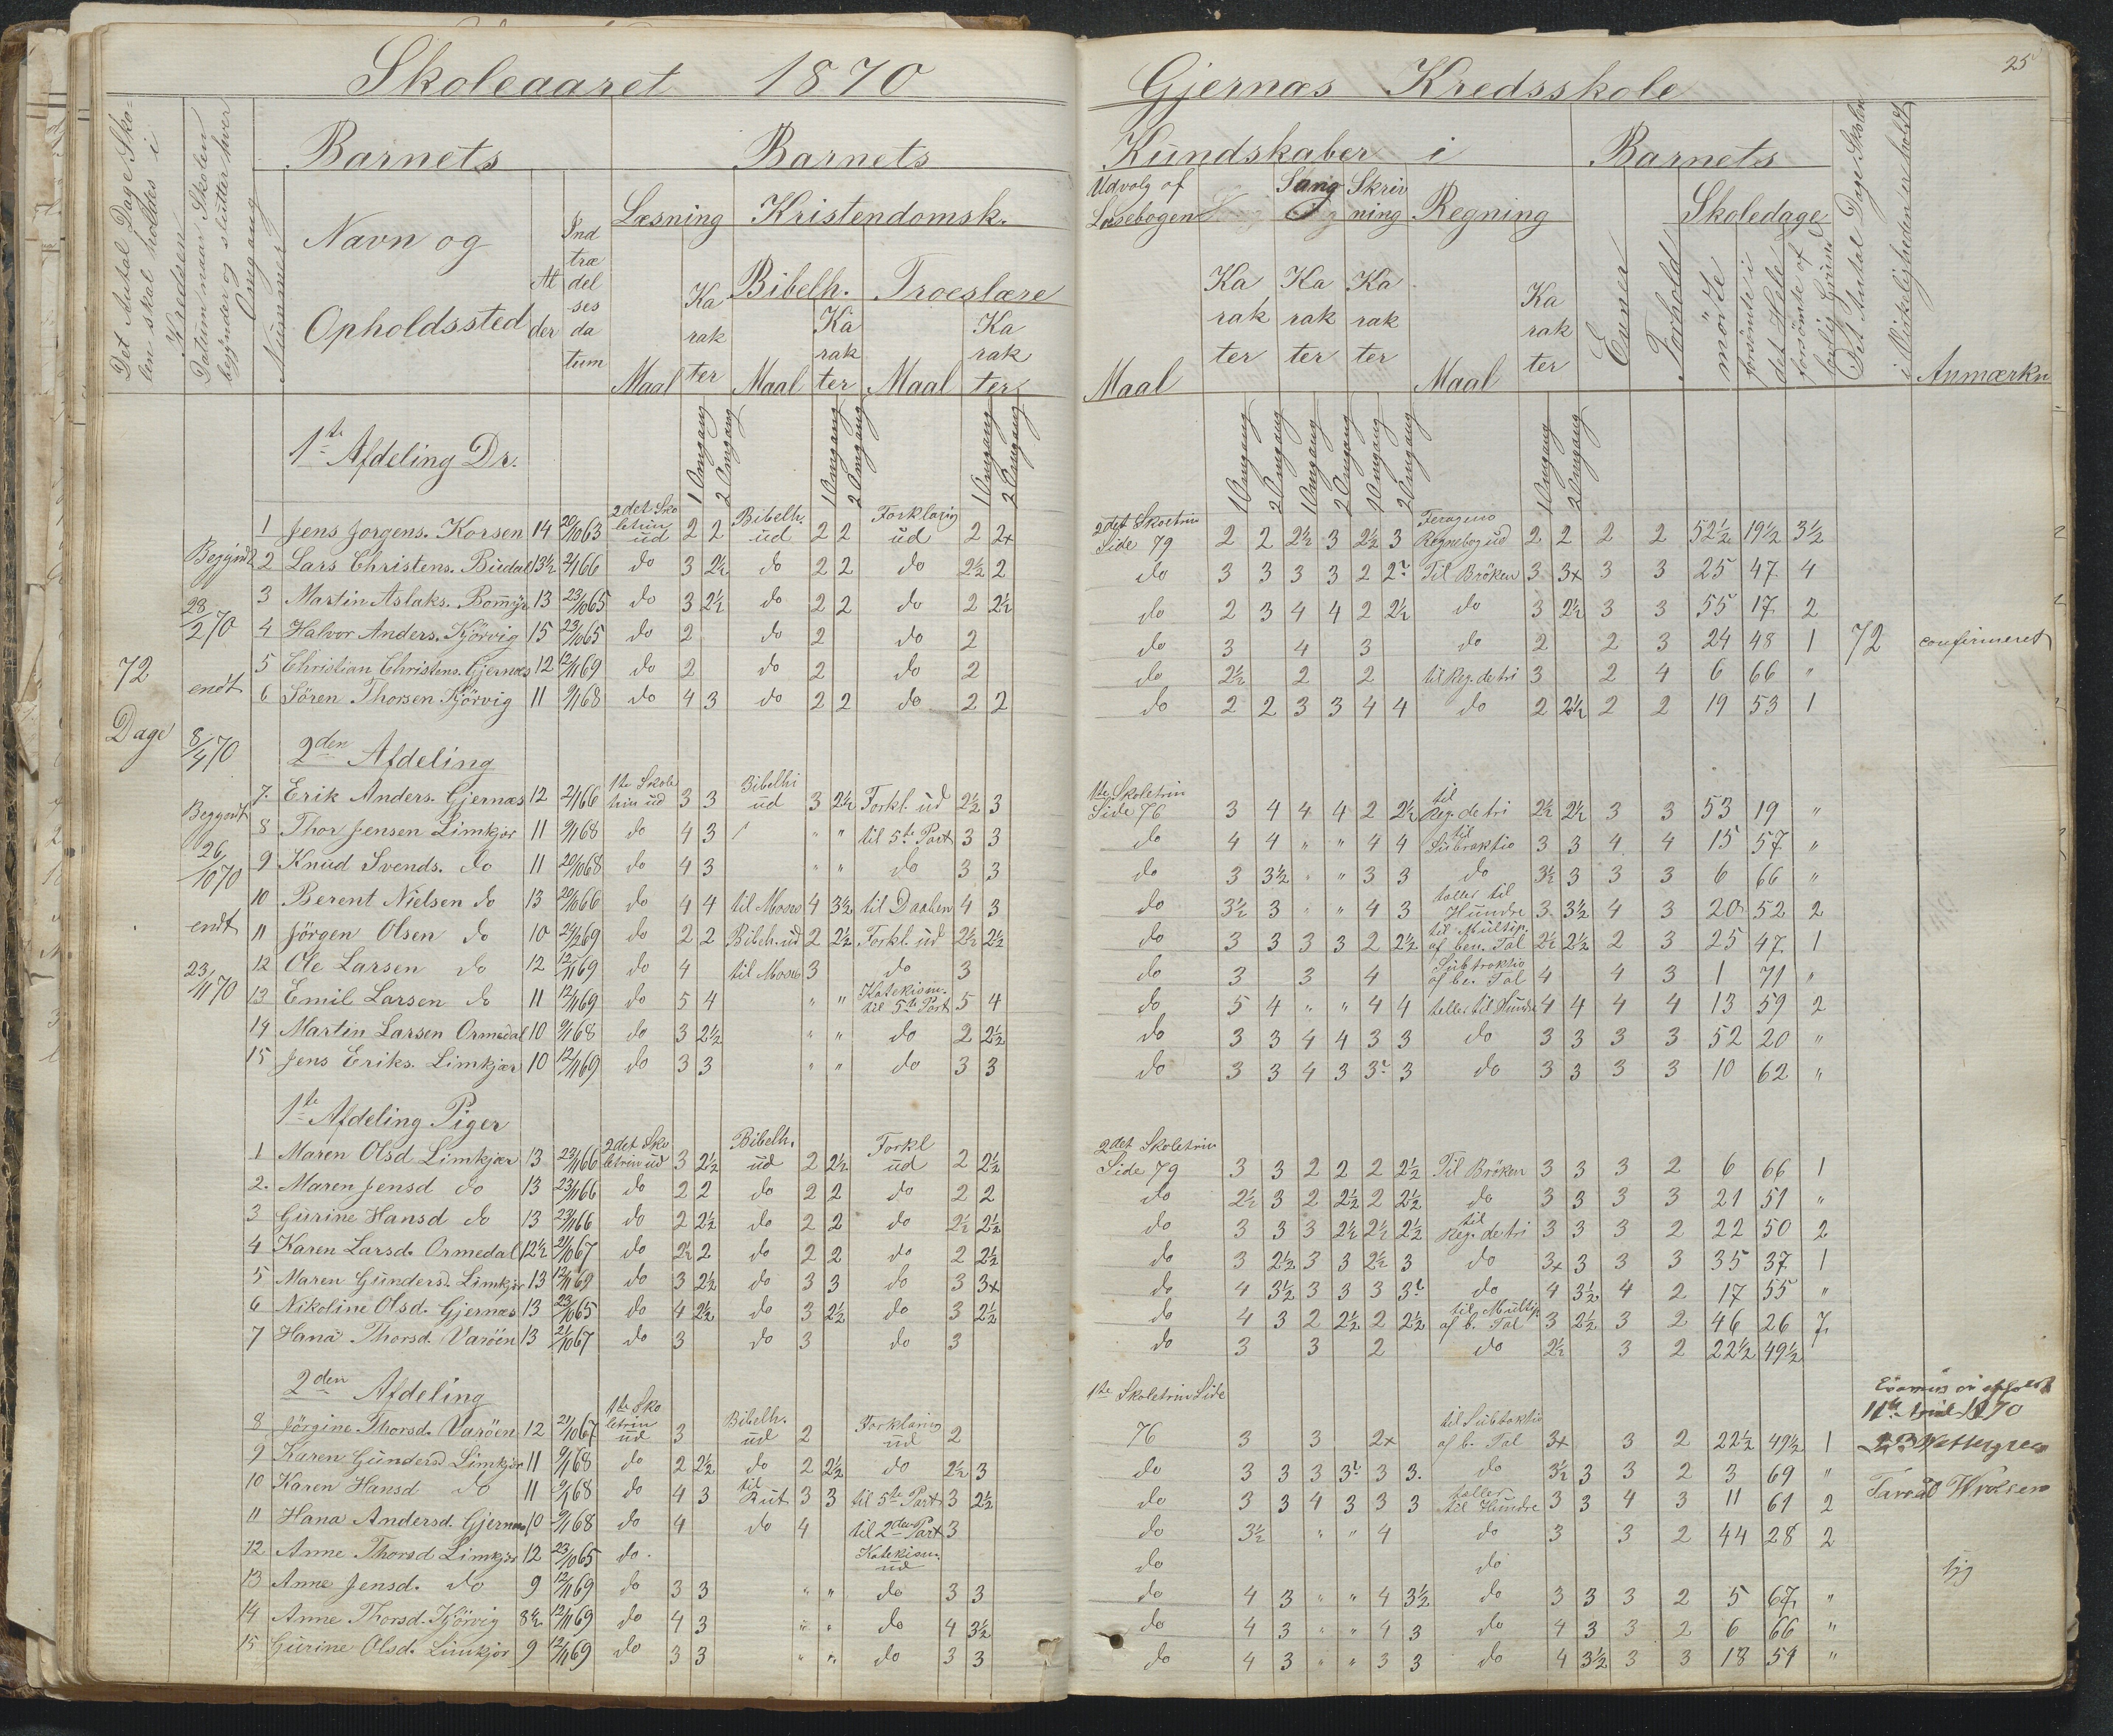 Skoleaaret 1870
Gjernæs Kredsskole
25
Det Antal Dage Skolen skal holdes i Kredsen
Datum naar Skolen begÿnder og slutter hver Omgang
Nummer
Barnets
Navn og
Opholdssted
Alder
Indtrædelsesdatum
Barnets
Læsning
Maal
Karakter
Kristendomsk.
Bibelh.
Maal
Karakter
Troeslære
Maal
Karakter
Kundskaber i
Udvalg af Læsebogen
Maal
Karakter
Sang
Karakter
Skrivning
Karakter
Regning
Maal
Karakter
Barnets
Evner
Forhold
Skoledage
mödte
forsömte i det Hele
forsömte af lovlig Grund
Det Antal Dage Skolen i Virkeligheden er holdt
Anmærkn
1 Omgang 2 Omgang 1 Omgang 2 Omgang 1 Omgang 2 Omgang
1 Omgang 2 Omgang 1 Omgang 2 Omgang 1 Omgang 2 Omgang 1 Omgang 2 Omgang
72
Dage
Begÿndt
28/2 70
endt
8/4 70
Begyndt
26/10 70
endt
23/11 70
1te Afdeling Dr.
1 Jens Jorgens. Korsen 14 20/10 63 2det Skoletrin ud 2 2 Bibelh. ud 2 2 Forklaring ud 2 2x 2det Skoletrin Side 79 2 2 2½ 3 2½ 3 Regnebog ud 2 2 2 2 52½ 19½ 3½
2 Lars Christens. Buedal 13½ 2/1 66 do 3 2½ do 2 2 do 2½ 2 do 3 3 3 3 2 2? Til Bröken 3 3x 3 3 25 47 4
3 Martin Aslaks. Bomÿr 13 23/10 65 do 3 2½ do 2 2 do 2 2½ do 2 3 4 4 2 2½ do 3 2½ 3 3 55 17 2
4 Halvor Anders. Kjörvig 15 23/10 65 do 2 do 2 do 2 do 3 4 3 do 2 2 3 24 48 1 72 confirmeret
5 Christian Christens. Gjernæs 12 12/11 69 do 2 do 2 do 2 do 2½ 2 2 til Reg. de tri 3 2 4 6 66 "
6 Sören Thorsen Kjörvig 11 9/1 68 do 4 3 do 2 2 do 2 2 do 2 2 3 3 4 4 do 2 2½ 2 2 19 53 1
2den Afdeling
7. Erik Anders. Gjernæs 12 2/1 66 1te Skoletrin ud 3 3 Bibelhi ud 3 2½ Forkl. ud 2½ 3 1te Skoletrin Side 76 3 4 4 4 2 2½ til Reg. de tri 2½ 2½ 3 3 53 19 "
8 Thor Jensen Limkjær 11 9/1 68 do 4 3 " " til 5te Part 3 3 do 4 4 " " 4 4 til Subraktio 3 3 4 4 15 57 "
9 Knud Svends. do 11 20/10 68 do 4 3 " " do 3 3 do 3 3½ " " 3 3 do 3½ 3 3 3 6 66 "
10 Berent Nielsen do 13 20/10 66 do 4 4 til Moses 4 3½ til Daaben 4 3 do 3½ 3 " " 4 3 tæller til Hundre 3 3½ 4 3 20 52 2
11 Jörgen Olsen do 10 24/2 69 do 2 2 Bibelh. ud 2 2½ Forkl. ud 2½ 2½ do 3 3 3 3 2 2½ til Multip. af ben. Tal 2½ 2½ 2 3 25 47 1
12 Ole Larsen do 12 12/11 69 do 4 til Moses 3 do 3 do 3 3 4 Subtraktio af be. Tal 4 4 3 1 71 "
13 Emil Larsen do 11 12/11 69 do 5 4 " " Katekism. til 5te Part 5 4 do 5 4 " " 4 4 tæller til Hundre 4 4 4 4 13 59 2
14 Martin Larsen Ormedal 10 9/1 68 do 3 2½ " " do 2 2½ do 3 3 4 4 3 3 do 3 3 3 3 52 20 "
15 Jens Eriks. Limkjær 10 12/11 69 do 3 3 " " do 3 3 do 3 3 4 3 3? 3 do 3 3 3 3 10 62 "
1te Afdeling Piger
1 Maren Olsd Limkjær 13 23/11 66 2det Skoletrin ud 3 2½ Bibelh. ud 2 2½ Forkl ud 2 2½ 2det Skoletrin Side 79 3 3 2 2 2 2½ Til Bröken 3 3 3 2 6 66 1
2. Maren Jensd do 13 23/11 66 do 2 2 do 2 2 do 2 2 do 2½ 3 2 2½ 2 2½ do 3 3 3 3 21 51 "
3 Gurine Hansd do 13 23/11 66 do 2 2½ do 2 2 do 2½ 2½ do 3 3 3 2½ 2½ 2½ til Reg. de tri 3 3 3 2 22 50 2
4 Karen Larsd. Ormedal 12½ 21/10 67 do 2½ 2 do 2 2 do 2 2½ do 3 2½ 3 3 2½ 3 do 3x 3 3 3 35 37 1
5 Maren Gundersd. Limkjær 13 12/11 69 do 3 2½ do 3 3 do 3 3x do 4 3½ 3 3 3 3? do 4 3½ 4 2 17 55 "
6 Nikoline Olsd. Gjernæs 13 23/10 65 do 4 2½ do 3 2½ do 3 2½ do 4 3 2 2½ 2 2½ til Multip. af b. Tal 3 2½ 3 2 46 26 7
7 Hana Thorsd. Varöen 13 21/10 67 do 3 do 3 do 3 do 3 3 2 do 2½ 3 2 22½ 49½
2den Afdeling
8 Jörgine Thorsd. Varöen 12 21/10 67 1te Skoletrin ud 3 Bibelh. ud 2 Forklaring ud 2 1te Skoletrin Side 76 3 3 2x til Subtraktio af b. Tal 3x 3 2 22½ 49½ 1
9 Karen Gundersd Limkjær 11 9/1 68 do 2 2½ do 2 2½ do 2½ 3 do 3 3 3 3? 3 3. do 3½ 3 3 2 3 69 "
10 Karen Hansd do 11 9/1 68 do 4 3 til Rut 3 3 til 5te Part 3 2½ do 3 3 4 3 3 3 tæller til Hundre 3 3 4 3 11 61 2
11 Hana Andersd. Gjernæs 10 9/1 68 do 4 do 4 til 2den Part 3 do 3½ " " 4 do 3 3 2 44 28 2
12 Anne Thorsd Limkjær 12 23/10 65 do. Katekism. ud do do syg
13 Anne Jensd. do 9 12/11 69 do 3 3 " " do 3 3 do 4 3 " " 4 3½ do 3 3 3 2 5 67 "
14 Anne Thorsd. Kjörvig 8½ 12/11 69 do 4 3 " " do 4 3½ do 4 3 " " 4 3 do 4 3 3 2 6 66 "
15 Gurine Olsd. Limkjær 9 12/11 69 do 3 3 " " do 3 3 do 4 3 " " 3 3 do 4 3½ 3 3 18 54 "
Examen er afholdt
1870